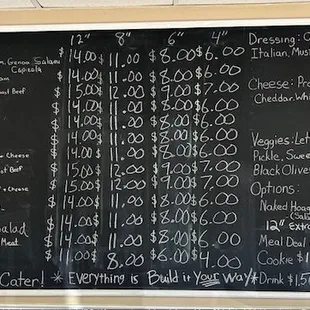 12" 8" 6" 4" Dressing: O
m, Genoa, Salami $14.00 $11.00 $8.00 $6.00 Italian, Mus
Capicola
am $14.00 $11.00 $8.00 $6.00
oast Beef $15.00 $12.00 $9.00 $7.00 Cheese: Pro
$14.00 $11.00 $8.00 $6.00 Cheddar, Whi
$14.00 $11.00 $8.00 $6.00
$14.00 $11.00 $8.00 $6.00 Veggies: Let
+ Cheese $14.00 $11.00 $8.00 $6.00 Pickle, Swee
st Beef $15.00 $12.00 $9.00 $7.00 Black Olive
+ Cheese $15.00 $12.00 $9.00 $7.00 Options:
$14.00 $11.00 $8.00 $6.00 Naked Hoag
(Sala
alad $14.00 $11.00 $8.00 $6.00 12" Extr
Meat $14.00 $11.00 $8.00 $6.00 Meal Deal
$11.00 $8.00 $6.00 $4.00 Cookie $1
Cater! * Everything is Build it Your Way * Drink $1.5